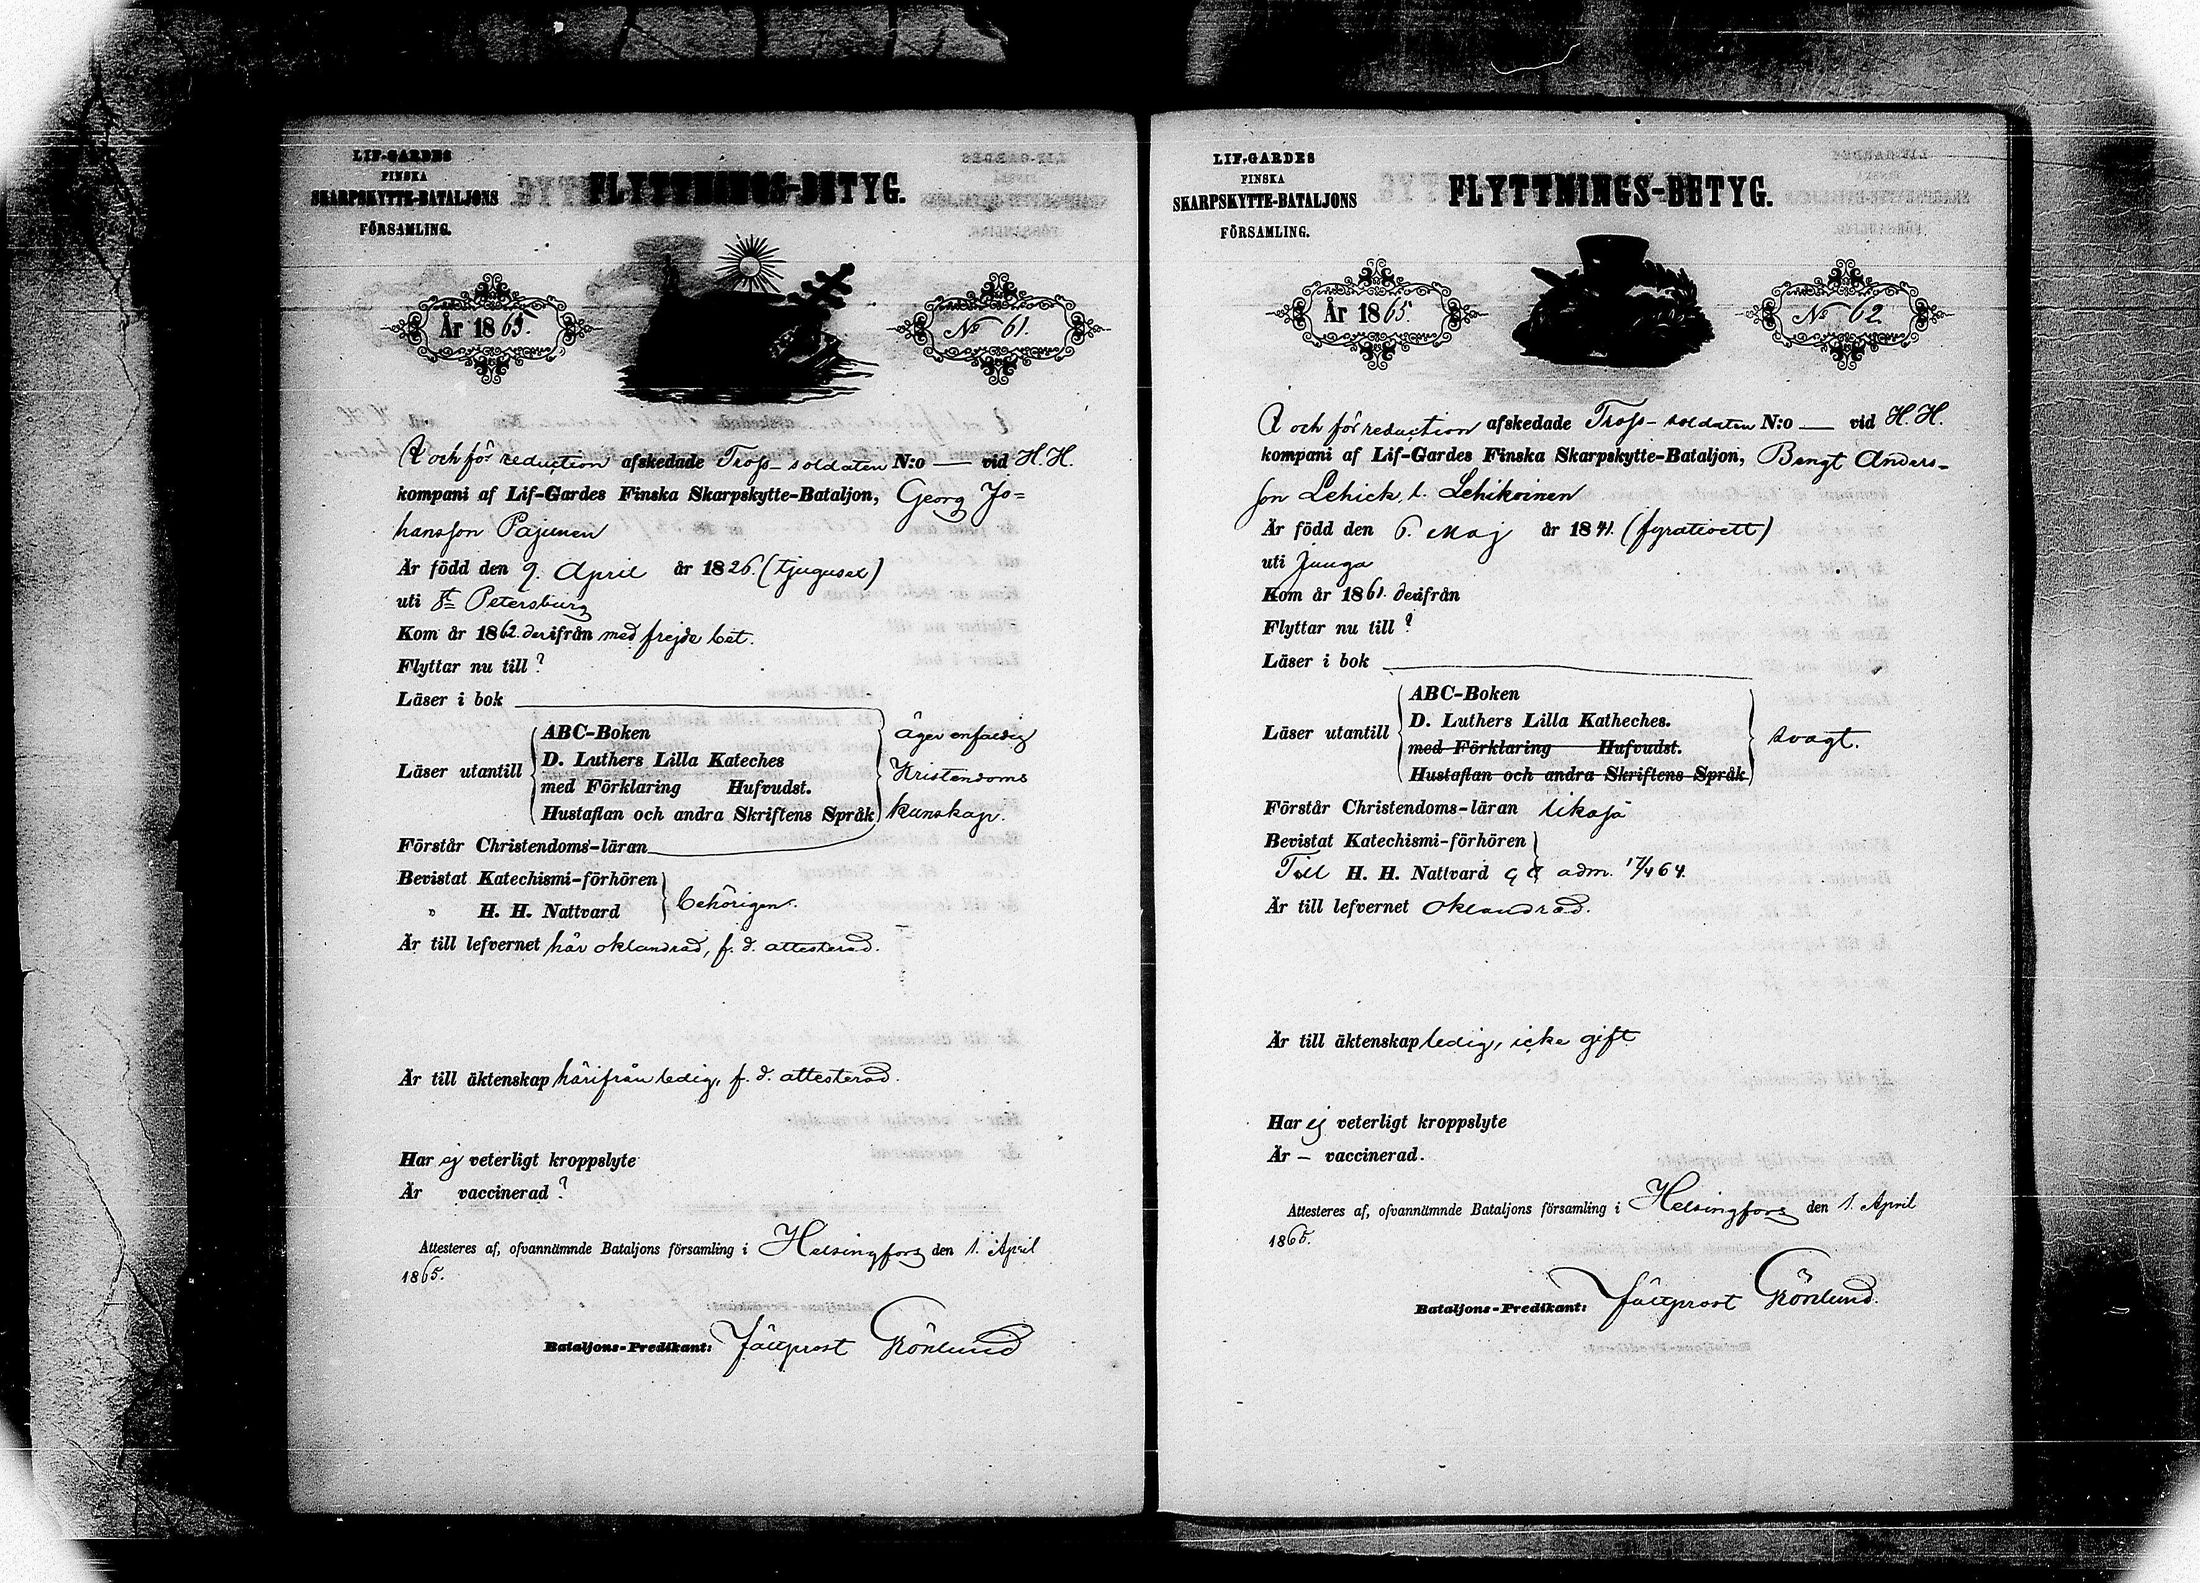 LIF-GARDES
FINSKA
SKARPSKYTTE-BATALJONS
FÖRSAMLING.
FLYTTNINGS-BETYG.
År 1865.
No 61.
och för reduction afskedade Tross-soldaten N:o — vid H. H.
kompani af Lif-Gardes Finska Skarpskytte-Bataljon, Georg Jo=
hansson Pajunen
Är född den 9. April år 1826. (tjugusex)
uti St Petersburg
Kom år 1862. derifrån med frejde bet.
Flyttar nu till ?
Läser i bok
Läser utantill
ABC-Boken
D. Luthers Lilla Kateches
med Förklaring Hufvudst.
Hustaflan och andra Skriftens Språk
äger enfaldig
Kristendoms
kunskap.
Förstår Christendoms-läran
Bevistat Katechismi-förhören
" H. H. Nattvard
behörigen.
Är till lefvernet här oklandrad, f. d. attesterad.
Är till äktenskap härifrån ledig, f. d. attesterad.
Har ej veterligt kroppslyte
Är vaccinerad ?
Attesteres af, ofvannämnde Bataljons församling i Helsingfors den 1. April
1865.
Bataljons-Predikant: Fältprost Grönlund
LIF-GARDES
FINSKA
SKARPSKYTTE-BATALJONS
FÖRSAMLING.
FLYTTNINGS-BETYG.
År 1865.
No 62
och för reduction afskedade Tross-soldaten N:o — vid H. H.
kompani af Lif-Gardes Finska Skarpskytte-Bataljon, Bengt Anders-
son Lehick, l. Lehikoinen
Är född den 6. Maj år 1841. (fyratioett)
uti Junga
Kom år 1861. derifrån
Flyttar nu till ?
Läser i bok
Läser utantill
ABC-Boken
D. Luthers Lilla Katheches.
med Förklaring Hufvudst.
Hustaflan och andra Skriftens Språk
svagt.
Förstår Christendoms-läran likaså
Bevistat Katechismi-förhören
Till H. H. Nattvard adm. 17/4 64.
Är till lefvernet oklandrad.
Är till äktenskap ledig, icke gift
Har ej veterligt kroppslyte
Är – vaccinerad.
Attesteres af, ofvannämnde Bataljons församling i Helsingfors den 1. April
1865.
Bataljons-Predikant: Fältprost Grönlund.